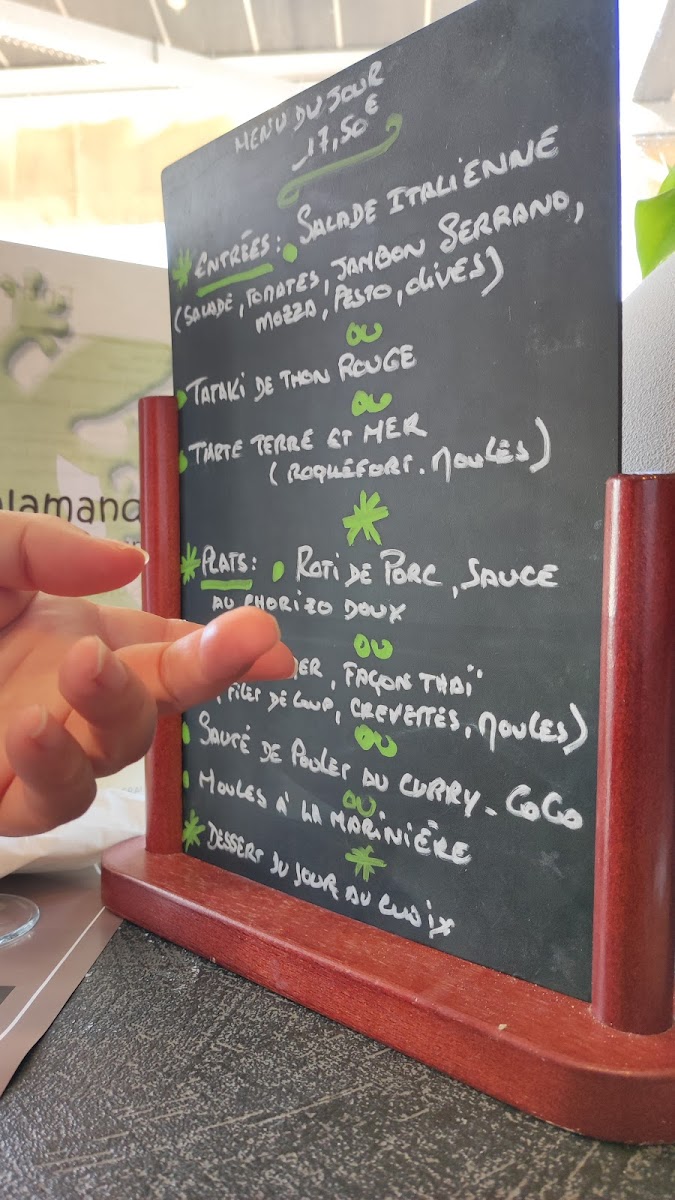 MENU DU JOUR
17,50€
* ENTRÉES : • SALADE ITALIENNE
(SALADE, TOMATES, JAMBON SERRANO,
MOZZA, PESTO, OLIVES)
OU
• TATAKI DE THON ROUGE
OU
• TARTE TERRE ET MER
(ROQUEFORT. MOULES)
*
* PLATS : • ROTI DE PORC, SAUCE
AU CHORIZO DOUX
OU
FAÇON THAÏ
FILET DE LOUP, CREVETTES, MOULES)
OU
• SAUTÉ DE POULET AU CURRY-COCO
OU
• MOULES À LA MARINIÈRE
*
* DESSERT DU JOUR AU CHOIX
lamand